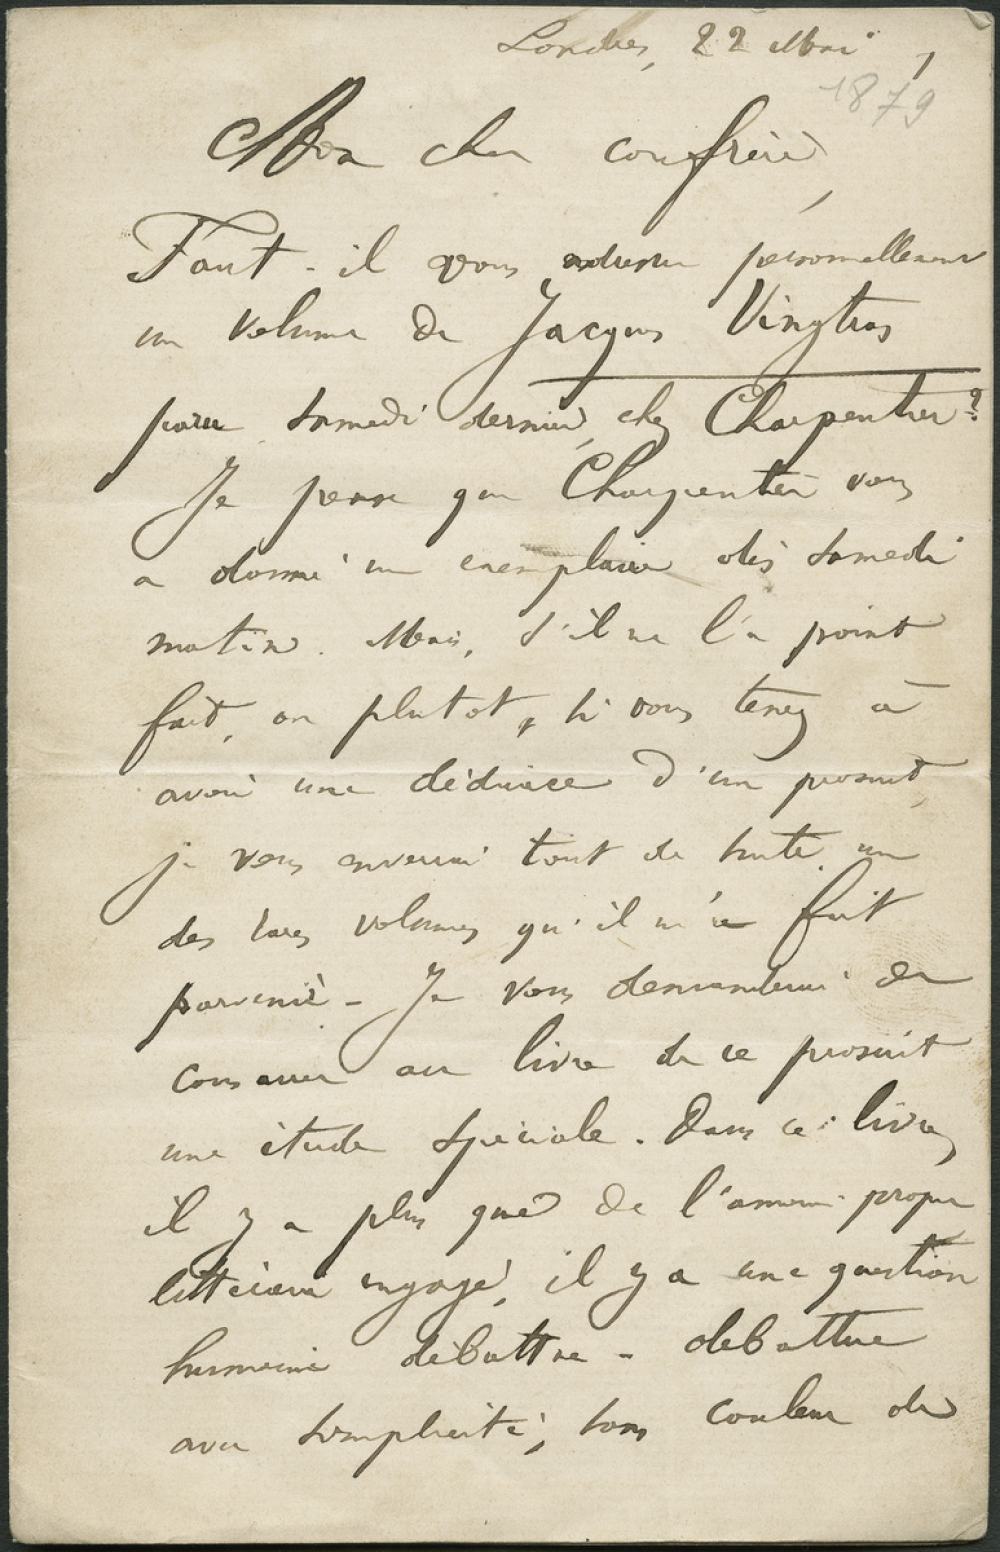 Londres, 22 Mai,
1879
Mon cher confrère,
Faut-il vous adresser personnellement
un volume de Jacques Vingtras
paru samedi dernier, chez Charpentier?
Je pense que Charpentier vous
a donné un exemplaire dès samedi
matin. Mais, s'il ne l'a point
fait, ou plutot, si vous tenez à
avoir une dédicace d'un proscrit,
je vous enverrai tout de suite un
des rares volumes qu'il m'a fait
parvenir - Je vous demanderai de
consacrer au livre de ce proscrit
une étude spéciale. Dans ce livre,
il y a plus que de l'amour-propre
littéraire engagé, il y a une question
humaine débattue - debattue
avec simplicité, sans couleur de